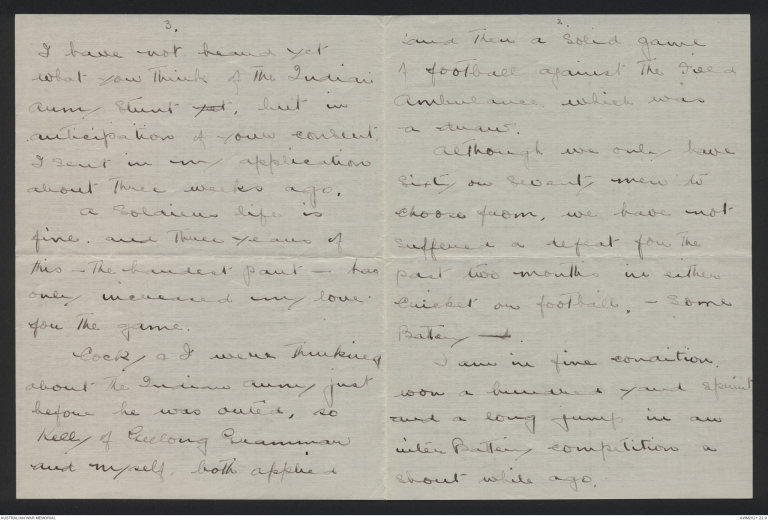 3.
I have not heard yet
what you think of the Indian
army stunt yet, but in
anticipation of your consent.
I sent in my application
about three weeks ago.
A Soldiers life is
fine. and three years of
this - the hardest part - has
only increased my love
for the game.
Cocky & I were thinking
about the Indian army just
before he was outed, so
Kelly of Geelong Grammar
and myself. both applied
3.
and then a solid game
of football against the Field
Ambulance. which was
a draw.
Although we only have
sixty or seventy men to
choose from, we have not
suffered a defeat for the
past two months in either
cricket or football. - Some
Battery -.
I am in fine condition.
won a hundred yard sprint
and a long jump in an
inter Battery competition a
short while ago.
AUSTRALIAN WAR MEMORIAL
AWM2021.22.9